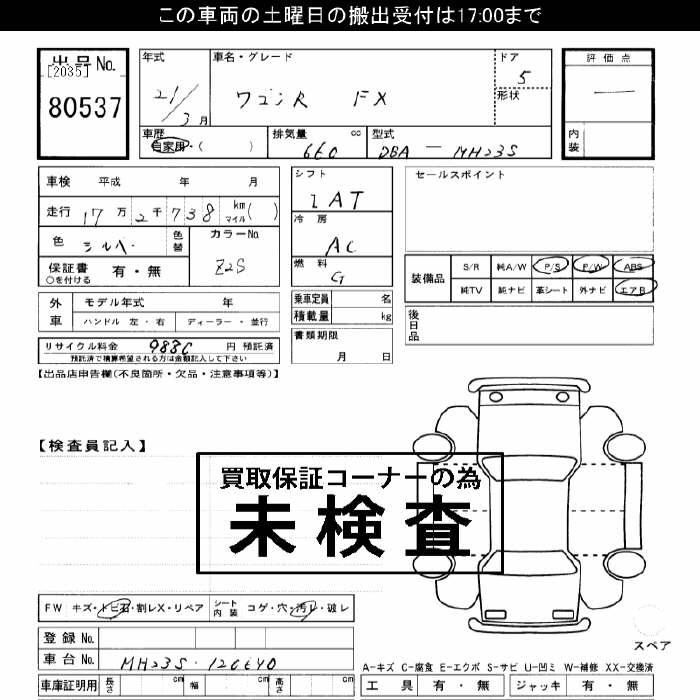 この車両の土曜日の搬出受付は17:00まで
出品No.
[2035]
80537
年式
21/3月
車名・グレード
ワゴンR FX
ドア
5
形状
評価点
内装
車歴
自家用・( )
排気量 cc
660
型式
DBA - MH23S
車検 平成 年 月
走行 17万2千738 km マイル ( )
色 シルバー
色替
カラーNo.
Z2S
保証書 有・無
○を付ける
シフト
IAT
冷房
AC
燃料
G
セールスポイント
装備品
S/R 純A/W P/S P/W ABS
純TV 純ナビ 革シート 外ナビ エアB
外車
モデル年式 年
ハンドル 左・右 ディーラー・並行
乗車定員 名
積載量 kg
後日品
リサイクル料金 円 預託済
預託済で積算希望される方は金額記入して下さい
書類期限
月 日
【出品店申告欄(不良箇所・欠品・注意事項等)】
【検査員記入】
買取保証コーナーの為
未検査
FW キズ・トビ石・割レX・リペア
シート内装 コゲ・穴・汚レ・破レ
登録No.
車台No. MH23S-126640
車庫証明用 長さ cm 幅 cm 高さ cm
スペア
A-キズ C-腐食 E-エクボ S-サビ U-凹ミ W-補修 XX-交換済
工具 有・無 ジャッキ 有・無